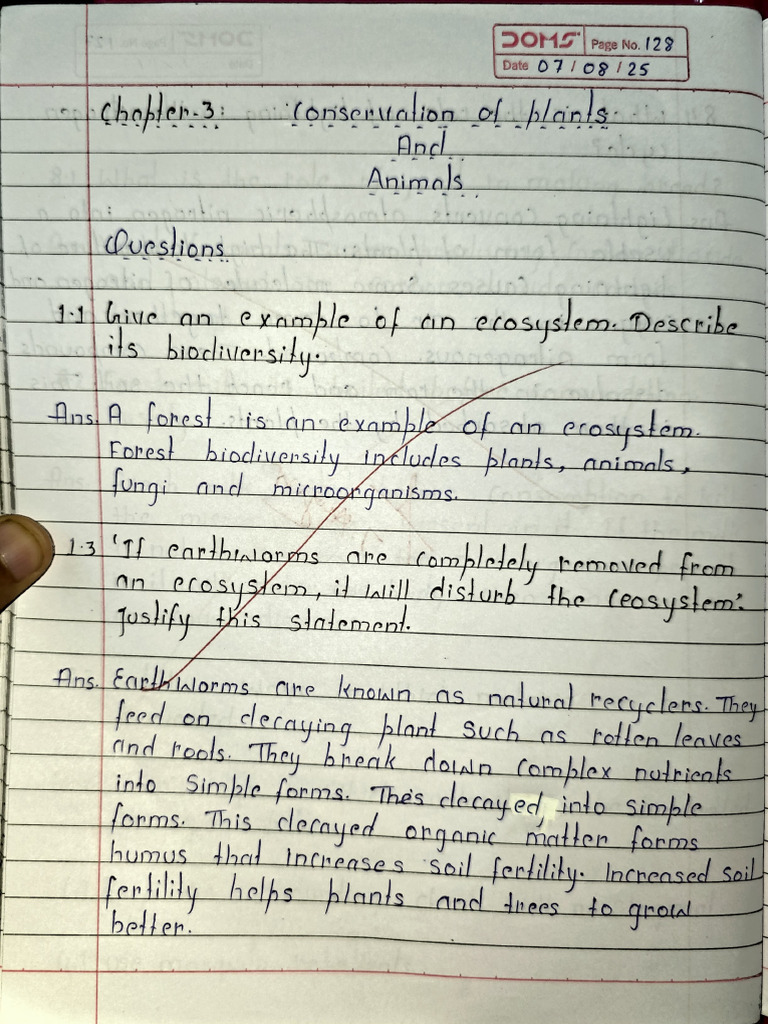 DOMS Page No. 128
Date 07 / 08 / 25
Chapter-3: Conservation of plants
And
Animals
Questions
1.1 Give an example of an ecosystem. Describe
its biodiversity.
Ans. A forest is an example of an ecosystem.
Forest biodiversity includes plants, animals,
fungi and microorganisms.
1.3 'If earthworms are completely removed from
an ecosystem, it will disturb the ceosystem'.
Justify this statement.
Ans. Earthworms are known as natural recyclers. They
feed on decaying plant such as rotten leaves
and roots. They break down complex nutrients
into simple forms. Thes decayed, into simple
forms. This decayed organic matter forms
humus that increases soil fertility. Increased soil
fertility helps plants and trees to grow
better.